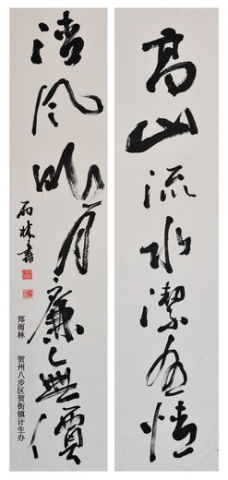 高山流水潔情
清風明月廉無價
雨林書
郑雨林 贺州八步区贺街镇计生办